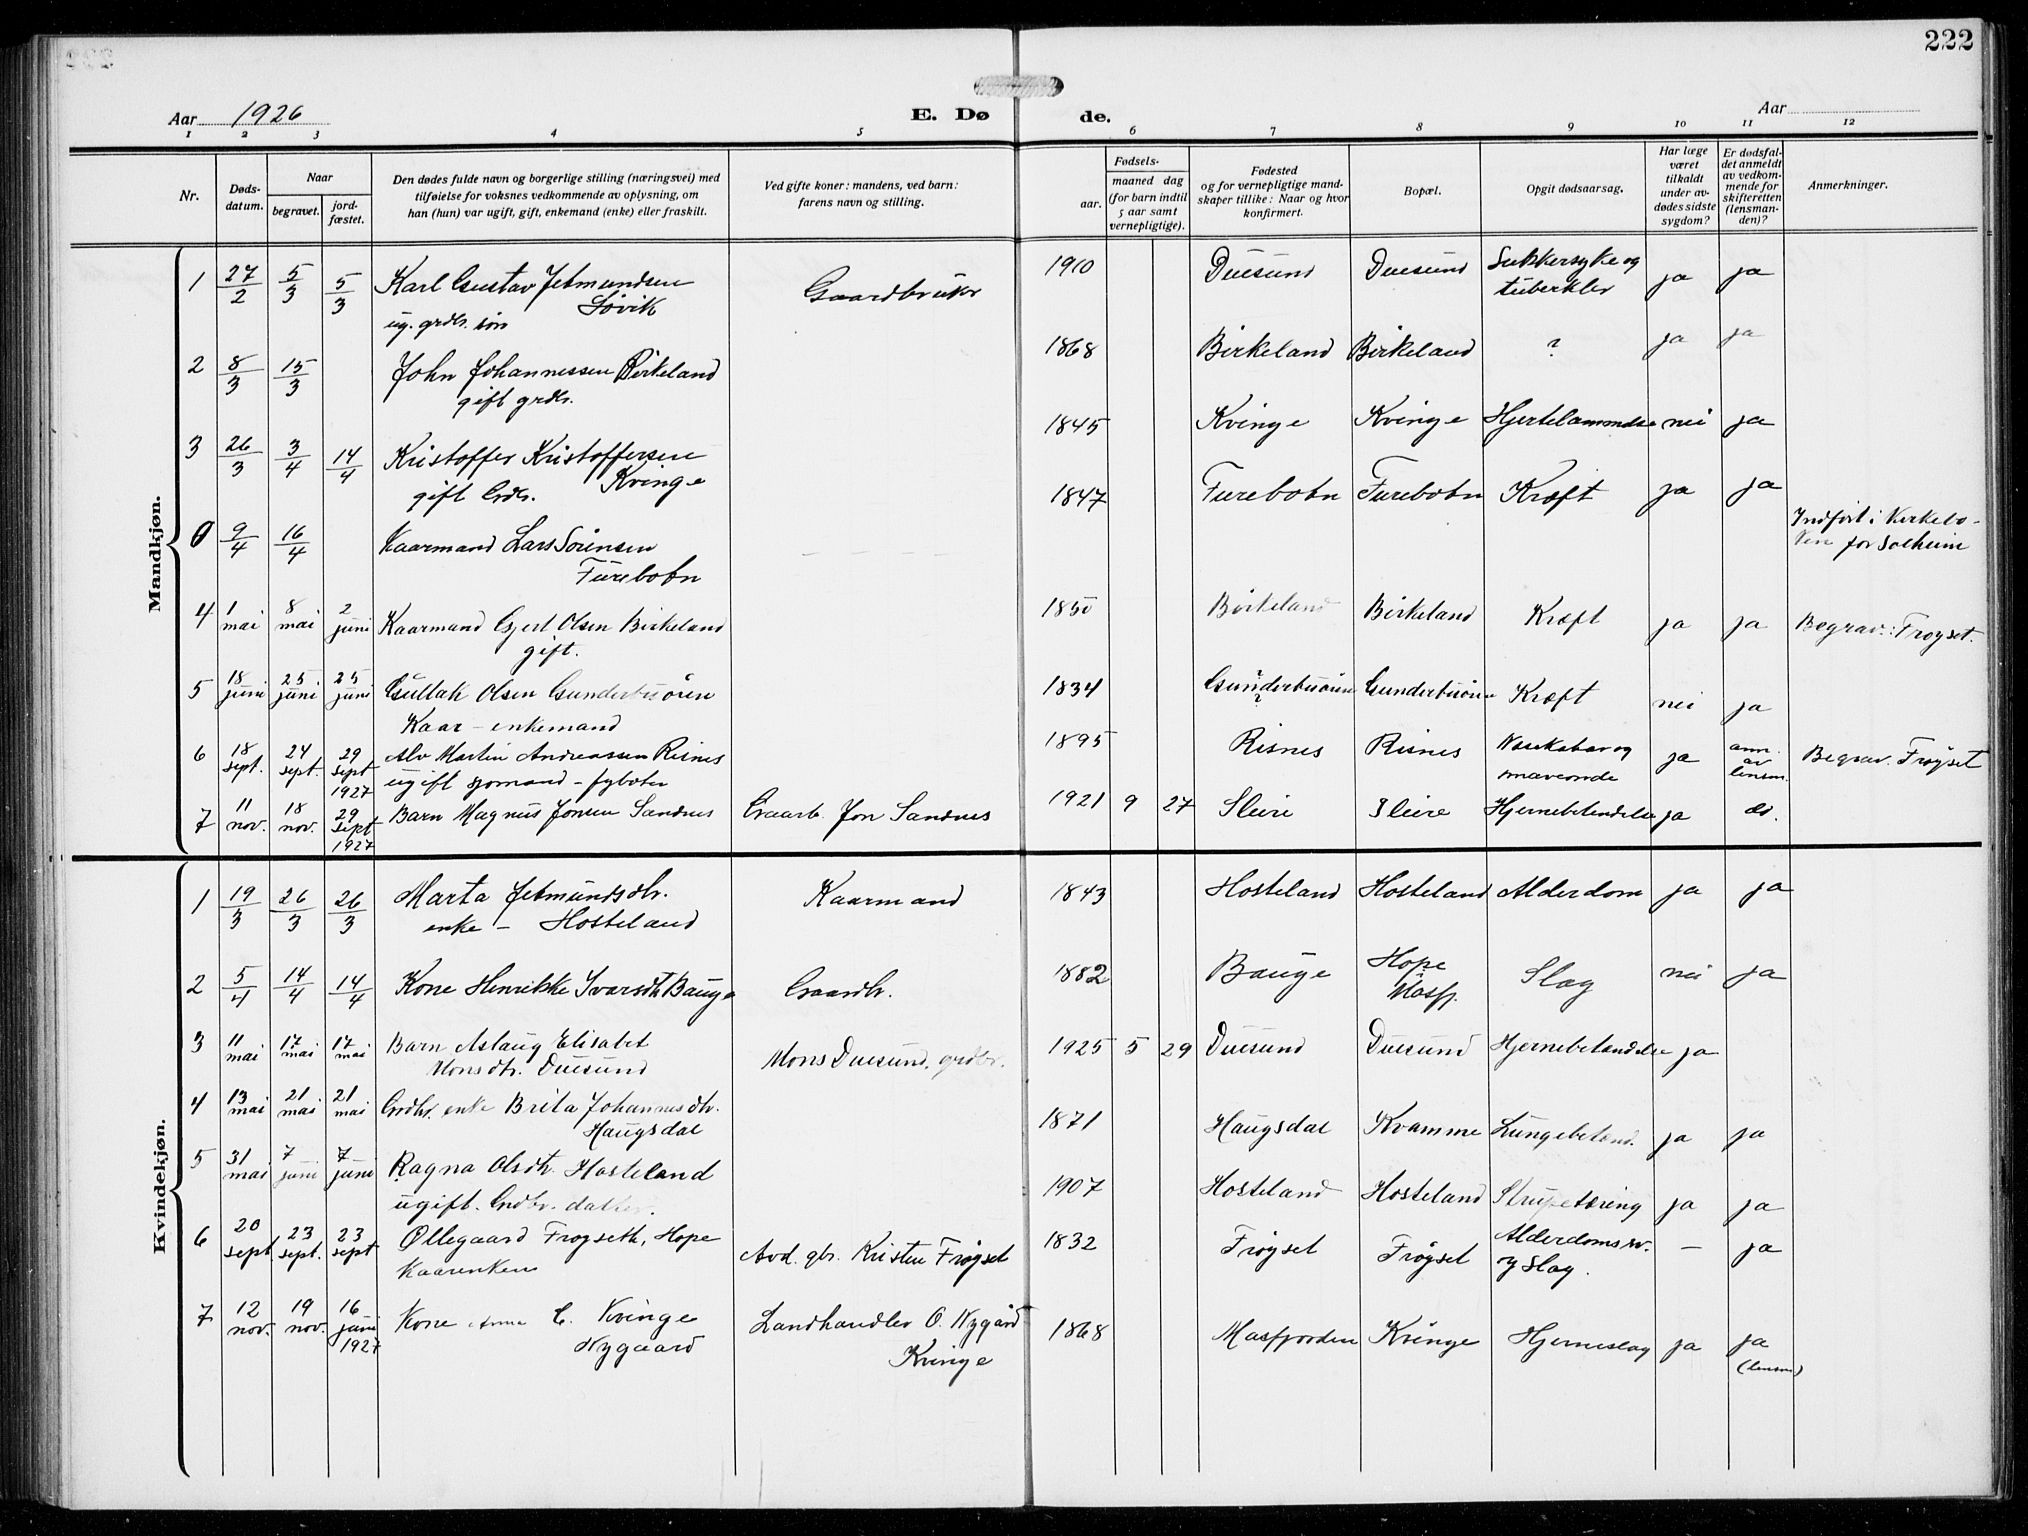 222
Aar 1926
E. Dø
de.
Aar
1 2 3 4 5 6 7 8 9 10 11 12
Nr.
Døds-
datum.
Naar
begravet.
jord-
fæstet.
Den dødes fulde navn og borgerlige stilling (næringsvei) med
tilføielse for voksnes vedkommende av oplysning, om
han (hun) var ugift, gift, enkemand (enke) eller fraskilt.
Ved gifte koner: mandens, ved barn:
farens navn og stilling.
Fødsels-
aar.
maaned dag
(for barn indtil
5 aar samt
vernepligtige).
Fødested
og for vernepligtige mand-
skaper tillike: Naar og hvor
konfirmert.
Bopæl.
Opgit dødsaarsag.
Har læge
været
tilkaldt
under av-
dødes sidste
sygdom?
Er dødsfal-
det anmeldt
av vedkom-
mende for
skifteretten
(lensman-
den)?
Anmerkninger.
Mandkjøn.
1 27/2 5/3 5/3 Karl Gustav Jetmundsen Gaardbruker 1910 Duesund Duesund Sukkersyke og ja ja
Søvik tuberkler
ug. grdbr. søn
2 8/3 15/3 John Johannessen Birkeland 1868 Birkeland Birkeland ? ja ja
gift grdbr.
3 26/3 3/4 14/4 Kristoffer Kristoffersen 1845 Kvinge Kvinge Hjertelammelse nei ja
gift Grdbr. Kvinge
0 9/4 16/4 Kaarmand Lars Sørensen 1847 Furebotn Furebotn Kræft ja ja Indført i Kirkebo-
Furebotn ken for Solheim
4 1 mai 8 mai 2 juni Kaarmand Gjert Olsen Birkeland 1850 Birkeland Birkeland Kræft ja ja Begrav. Frøyset.
gift.
5 18 juni 25 juni 25 juni Gullak Olsen Gunderbuøren 1834 Gunderbuøren ? Gunderbuøren Kræft nei ja
Kaar – enkemand
6 18 sept. 24 sept. 29 sept 1927 Alv Martin Andreassen Risnes 1895 Risnes Risnes ja anm. av lensm. Begrav. Frøyset
ugift sjømand – fyrbøter
7 11 nov. 18 nov. 29 sept 1927 Barn Magnus Jonsen Sandnes Gaardb. Jon Sandnes 1921 9 27 Sleire Sleire Hjernebetendelse ja do.
Kvindekjøn.
1 19/3 26/3 26/3 Marta Jetmundsdtr. Kaarmand 1843 Hosteland Hosteland Alderdom ja ja
enke – Hosteland
2 5/4 14/4 14/4 Kone Henrikke Ivarsdtr Bauge Gaardbr. 1882 Bauge Hope Slag nei ja
Masfj.
3 11 mai 17 mai 17 mai Barn Aslaug Elisabet Mons Duesund, grdbr. 1925 5 29 Duesund Duesund Hjernebetendelse ja
Monsdtr. Duesund
4 13 mai 21 mai 21 mai Grdbr. enke Brita Johannesdtr. 1871 Haugsdal Kvamme Lungebetend. ja ja
Haugsdal
5 31 mai 7 juni 7 juni Ragna Olsdtr. Hosteland 1907 Hosteland Hosteland Strupetæring ja ja
ugift. Grdbr. datter.
6 20 sept. 23 sept. 23 sept Øllegaard Frøyseth, Hope Avd. gbr. Kristen Frøyset 1832 Frøyset Frøyset Alderdomssv. – ja
Kaarenken og Slag.
7 12 nov. 19 nov. 16 juni 1927 Kone Anna E. Kvinge Landhandler O. Nygård 1868 Masfjorden Kvinge Hjerneslag ja ja
Nygaard Kvinge (lensm)